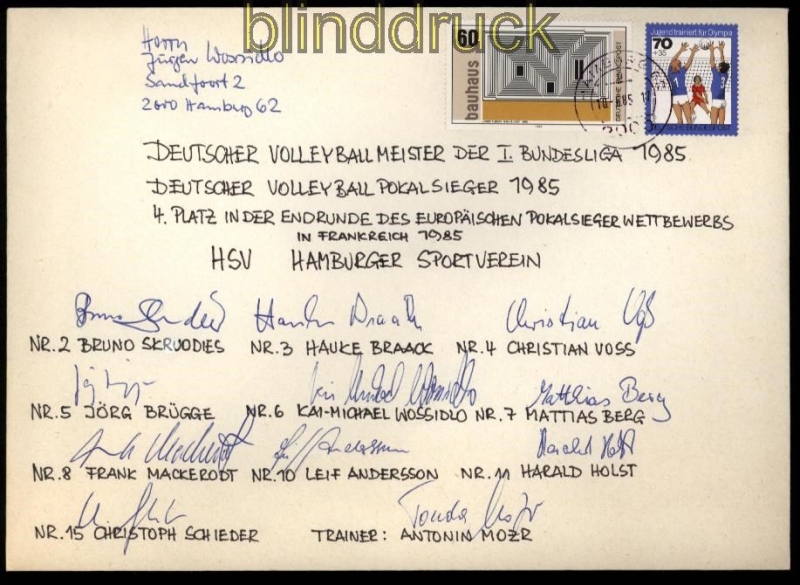 blinddruck
Herrn
Jürgen Wossidlo
Sandfoort 2
2000 Hamburg 62
60
bauhaus
DEUTSCHE BUNDESPOST
Jugend trainiert für Olympia
70
+35
DEUTSCHE BUNDESPOST
DEUTSCHER VOLLEYBALLMEISTER DER I. BUNDESLIGA 1985
DEUTSCHER VOLLEYBALL POKALSIEGER 1985
4. PLATZ IN DER ENDRUNDE DES EUROPÄISCHEN POKALSIEGER WETTBEWERBS
IN FRANKREICH 1985
HSV HAMBURGER SPORTVEREIN
Christian Voß
NR.2 BRUNO SKRUODIES NR.3 HAUKE BRAACK NR.4 CHRISTIAN VOSS
Matthias Berg
NR.5 JÖRG BRÜGGE NR.6 KAI-MICHAEL WOSSIDLO NR.7 MATTIAS BERG
NR.8 FRANK MACKERODT NR.10 LEIF ANDERSSON NR.11 HARALD HOLST
NR.15 CHRISTOPH SCHIEDER TRAINER: ANTONIN MOZR